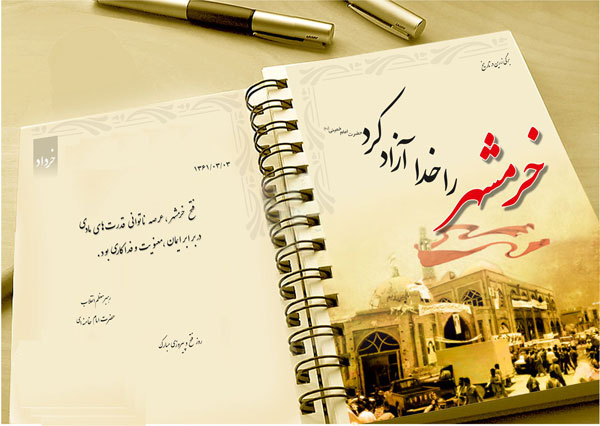 برگی زرین در تاریخ
خرمشهر
را خدا آزاد کرد
حضرت امام خمینی (ره)
خرداد
۱۳۶۱/۰۳/۰۳
فتح خرمشهر، عرصه ناتوانی قدرت‌های مادی
در برابر ایمان، معنویت و فداکاری بود.
رهبر معظم انقلاب
حضرت امام خامنه‌ای
روز فتح و پیروزی مبارک